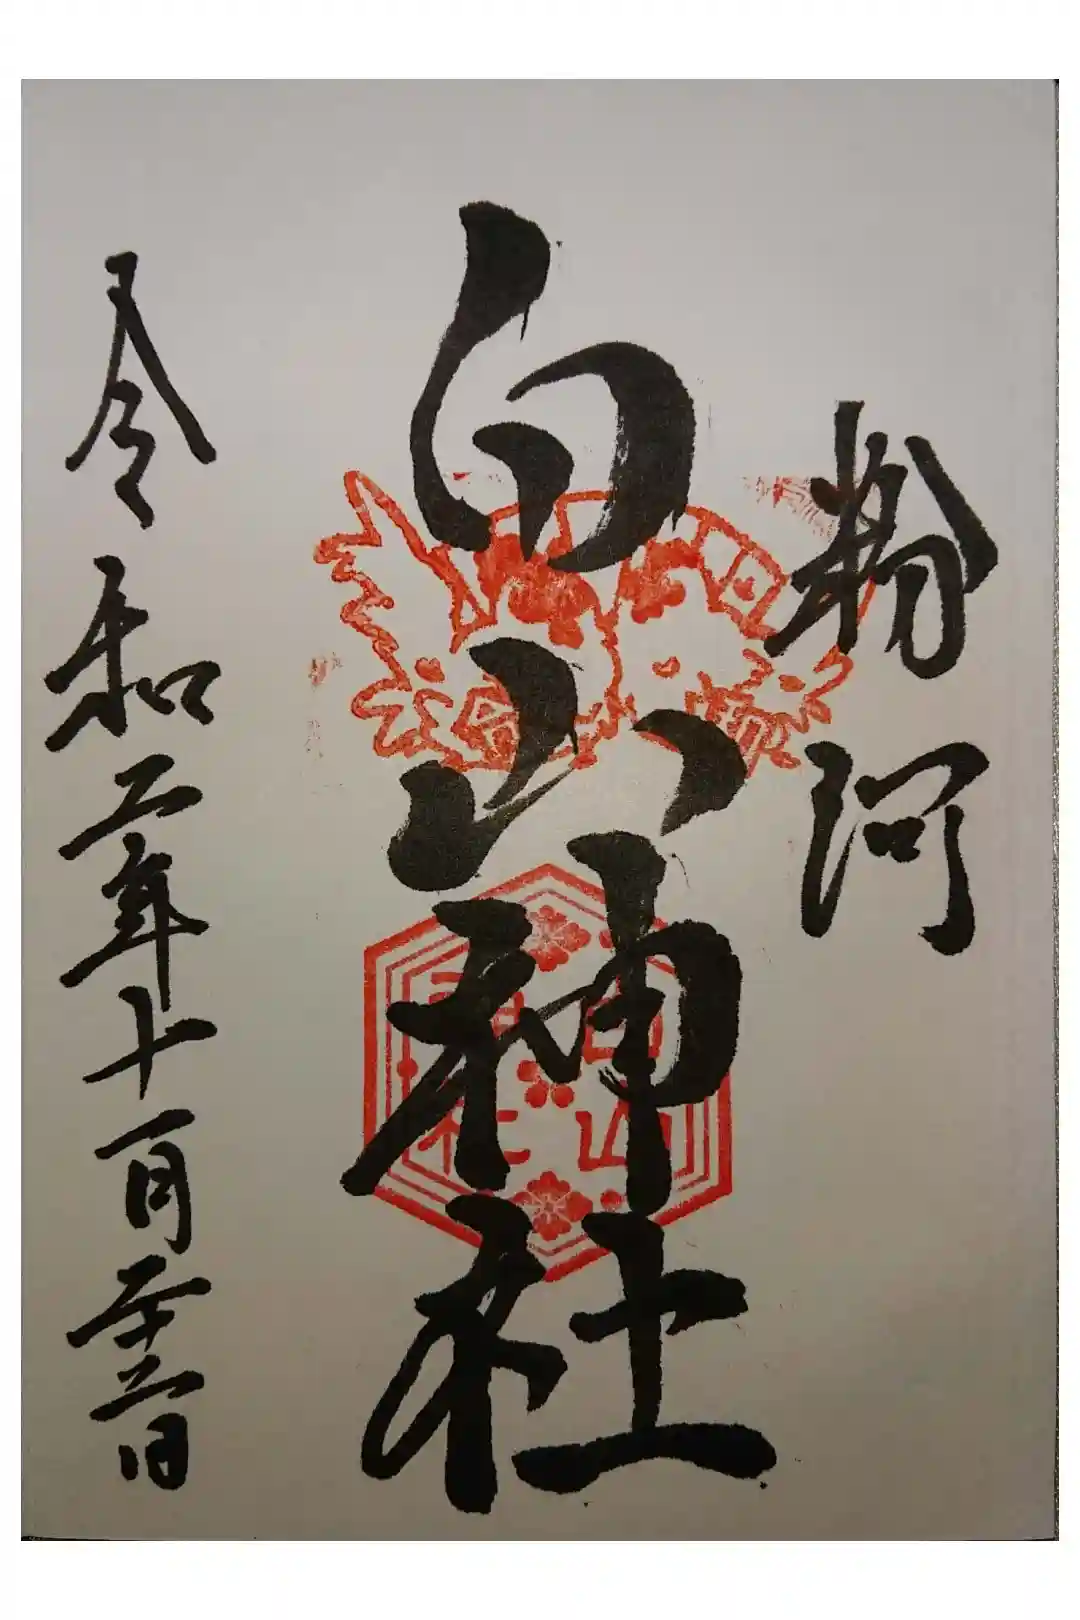 粉河
白山神社
令和二年十一月二十二日
白山
神社